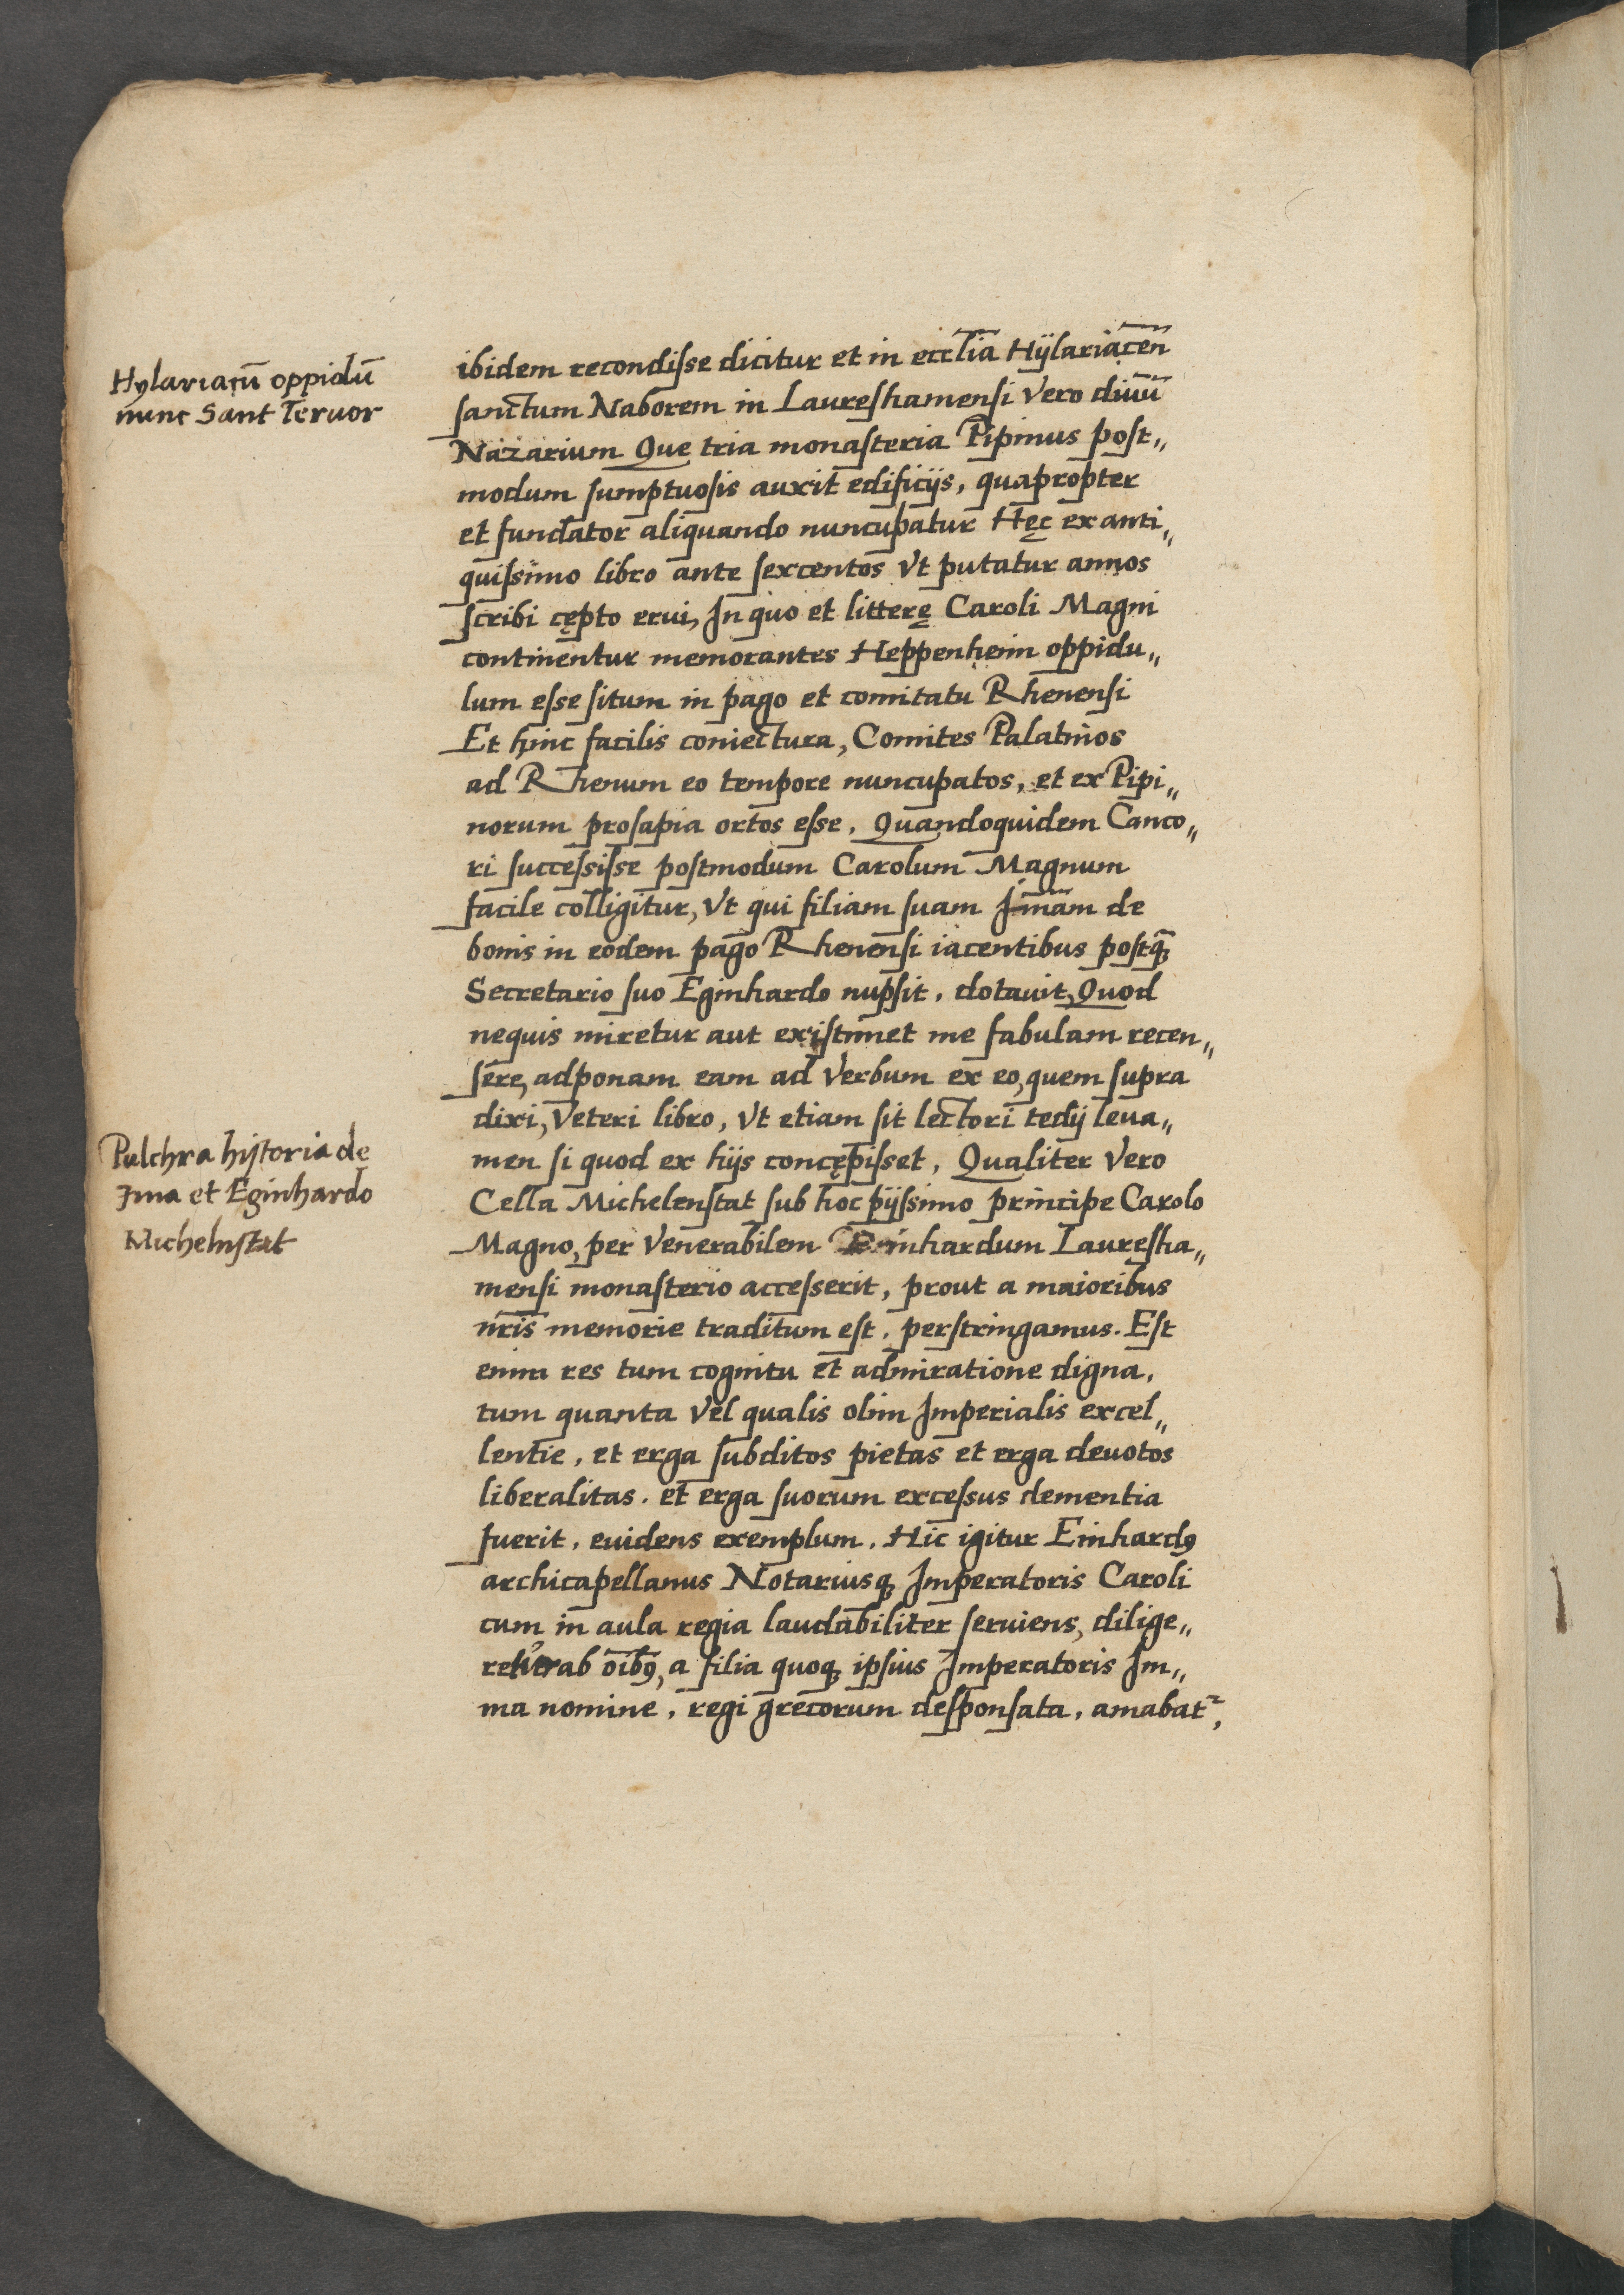 Hylariacū oppidū
nunc Sant Tervor
ibidem recondisse dicitur et in ecclīa Hÿlariacēn
sanctum Naborem in Laureshamensi vero divū
Nazarium Que tria monasteria Pipinus post„
modum sumptuosis auxit edificijs, quapropter
et fundator aliquando nuncupatur Hęc ex anti„
quissimo libro ante sexcentos vt putatur annos
scribi cępto erui, In quo et litterę Caroli Magni
continentur memorantes Heppenheim oppidu„
lum esse situm in pago et comitatu Rhenensi
Et hinc facilis coniectura, Comites Palatinos
ad Rhenum eo tempore nuncupatos, et ex Pipi„
norum prosapia ortos esse. Quandoquidem Canco„
ri successisse postmodum Carolum Magnum
facile colligitur, vt qui filiam suam Imām de
bonis in eodem pago Rhenensi iacentibus postq̄
Secretario suo Eginhardo nupsit, dotauit, Quod
nequis miretur aut existimet me fabulam recen„
sere, adponam eam ad verbum ex eo, quem supra
dixi, veteri libro, vt etiam sit lectori tedij leua„
men si quod ex hijs concępisset, Qualiter vero
Pulchra hystoria de
Ima et Eginhardo
Michelnstat
Cella Michelenstat sub hoc pijssimo principe Carolo
Magno, per venerabilem Eginhardum Lauresha„
mensi monasterio accesserit, prout a maioribus
nr̄is memorie traditum est, perstringamus. Est
enim res tum cognitu et admiratione digna,
tum quanta vel qualis olim Imperialis excel„
lentie, et erga subditos pietas et erga deuotos
liberalitas. et erga suorum excessus clementia
fuerit, euidens exemplum. Hic igitur Einhardꝰ
archicapellanus Notariusq; Imperatoris Caroli
cum in aula regia laudabiliter seruiens, dilige„
retur ab oībꝰ, a filia quoq; ipsius Imperatoris Im„
ma nomine, regi grecorum desponsata, amabat᷑,